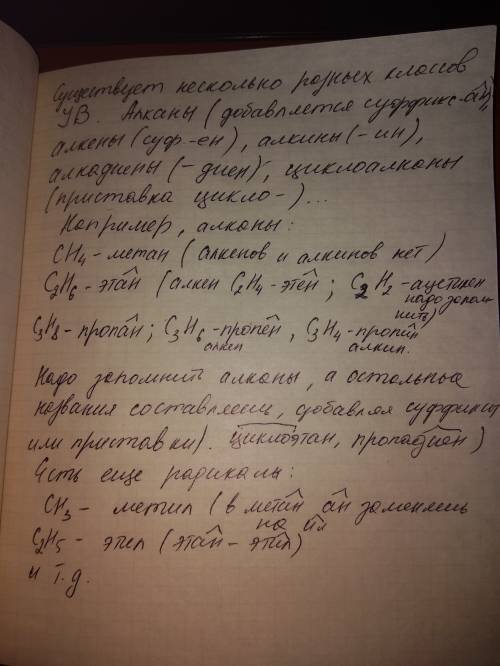 Существует несколько разных классов
УВ. Алканы (добавляется суффикс -ан),
алкены (суф. -ен), алкины (-ин),
алкадиены (-диен), циклоалканы
(приставка цикло-)...
Например, алканы:
CH4 - метан (алкенов и алкинов нет)
C2H6 - этан (алкен C2H4 - этен; C2H2 - ацетилен
надо запом-
нить)
C3H8 - пропан; C3H6 - пропен, C3H4 - пропин
алкен алкин.
Надо запомнить алканы, а остальные
названия составляем, добавляя суффиксы
или приставки). Циклоэтан, пропадиен)
Есть еще радикалы:
CH3 - метил (в метан ан заменяешь
на ил
C2H5 - этил (этан - этил)
и т.д.